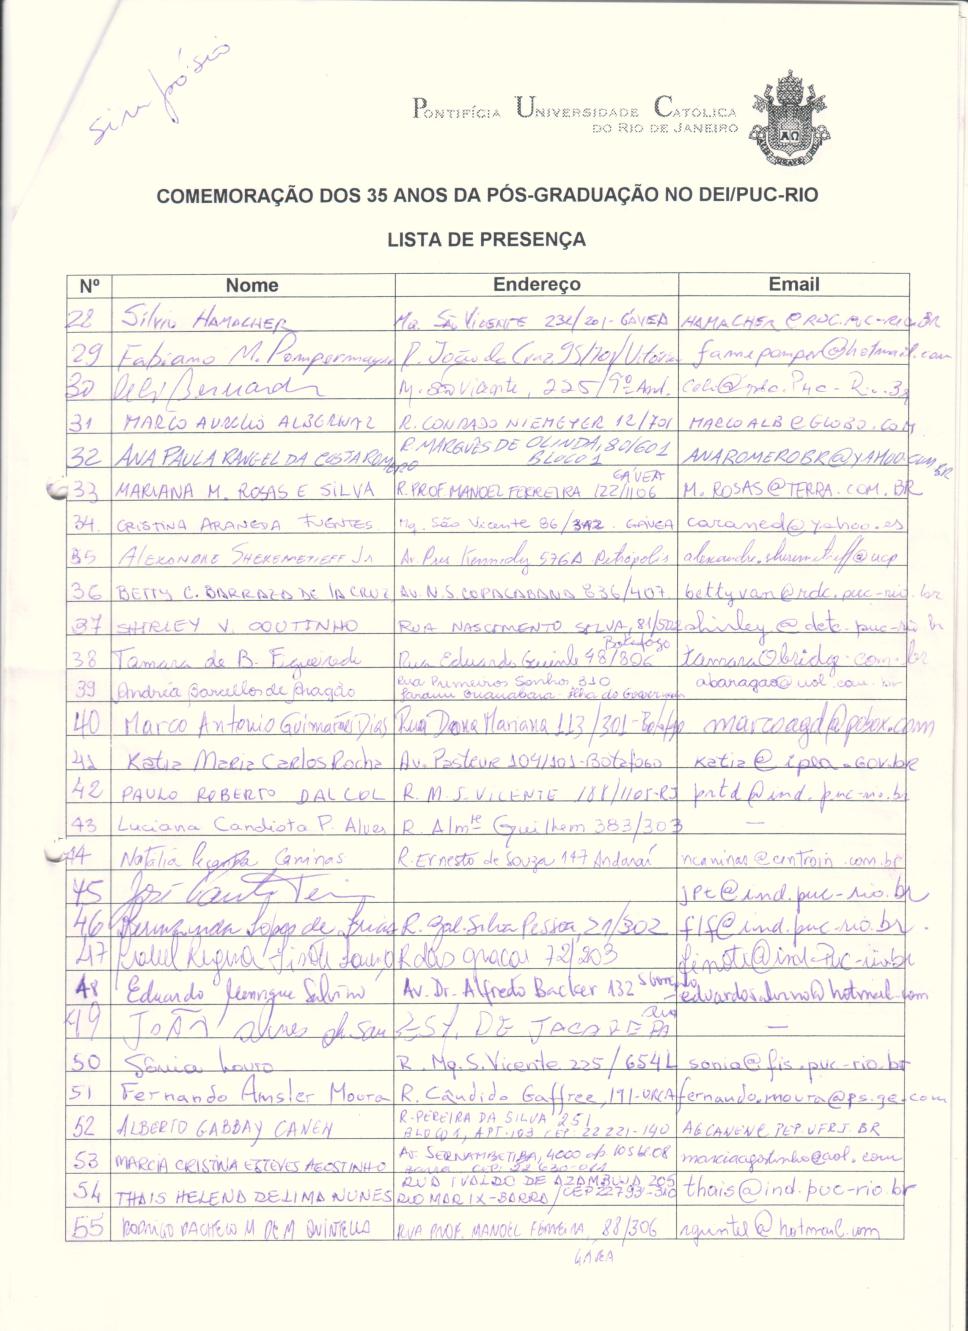 simpósio
PONTIFÍCIA UNIVERSIDADE CATÓLICA
DO RIO DE JANEIRO
COMEMORAÇÃO DOS 35 ANOS DA PÓS-GRADUAÇÃO NO DEI/PUC-RIO
LISTA DE PRESENÇA
Nº Nome Endereço Email
28 Silvio HAMACHER Mq. São VICENTE 232/201-GÁVEA HAMACHER@RDC.PUC-RIO.BR
29 Fabiano M. Pompermayer R. João da Cruz 95/701/Vitória famepomper@hotmail.com
30 Bernardi M. São Vicente, 225/9º And.
31 MARCO AURELIO ALBERNAZ R. CONRADO NIEMEYER 12/701 MARCOALB@GLOBO.COM
32 ANA PAULA RANGEL DA COSTA ROMERO R. MARQUÊS DE OLINDA, 80/601 BLOCO 1 ANAROMEROBR@YAHOO.COM.BR
33 MARIANA M. ROSAS E SILVA R. PROF. MANOEL FERREIRA 122/1106 GÁVEA M.ROSAS@TERRA.COM.BR
34. CRISTINA ARANEDA FUENTES Mq. São Vicente 86/ GÁVEA caraned@yahoo.es
35 ALEXANDRE SHEREMETIEFF Jr Av. Pres Kennedy 576A Petrópolis alexandre.sheremetieff@ucp
36 BETTY C. BARRAZA DE LA CRUZ AV. N.S. COPACABANA 836/407 bettyvan@rdc.puc-rio.br
37 SHIRLEY V. COUTINHO RUA NASCIMENTO SILVA, 81/502 shirley@dctc.puc-rio.br
38 Tamara de B. Figueiredo Rua Eduardo Guinle 48/806 Botafogo
39 Andréa Barcellos de Aragão Rua Primeiros Sonhos, 310 Jardim Guanabara - Ilha do Governador abaragao@uol.com.br
40 Marco Antonio Guimarães Dias Rua Dona Mariana 113/301-Botafogo marcoagd@pobox.com
41 Katia Maria Carlos Rocha Av. Pasteur 104/101-Botafogo katia@ipea.gov.br
42 PAULO ROBERTO DALCOL R. M. S. VICENTE 188/1105-RJ prtd@ind.puc-rio.br
43 Luciana Candiota P. Alves R. Almte Guilhem 383/303 —
44 Natália Caminas R. Ernesto de Souza 147 Andaraí ncaminas@centroin.com.br
45 José jpt@ind.puc-rio.br
46 Fernanda Lopes de Frias R. Gal. Silva Pessoa, 21/302 flf@ind.puc-rio.br.
47 Regina R das graças 72/203 finote@ind.puc-rio.br
48 Eduardo Henrique Av. Dr. Alfredo Backer 132
49 JOÃO EST. DE JACAREPAGUÁ —
50 Sônia Louro R. Mq. S. Vicente 225/654L sonia@fis.puc-rio.br
51 Fernando Amsler Moura R. Cândido Gaffree, 191-URCA fernando.moura@ps.ge.com
52 ALBERTO GABBAY CANEN R. PEREIRA DA SILVA 251, BLOCO 1, APT. 103 CEP. 22221-140 AGCANEN@PEP.UFRJ.BR
53 MARCIA CRISTINA ESTEVES AGOSTINHO AV. SERNAMBETIBA, 4000 marciaagostinho@aol.com
54 THAIS HELENA DE LIMA NUNES RUA IVALDO DE AZAMBUJA 205 RIO MAR IX-BARRA/CEP 22793-310 thais@ind.puc-rio.br
55 RODRIGO PACHECO M DE M QUINTELLA RUA PROF. MANOEL FERREIRA, 88/306 rquintel@hotmail.com
GÁVEA